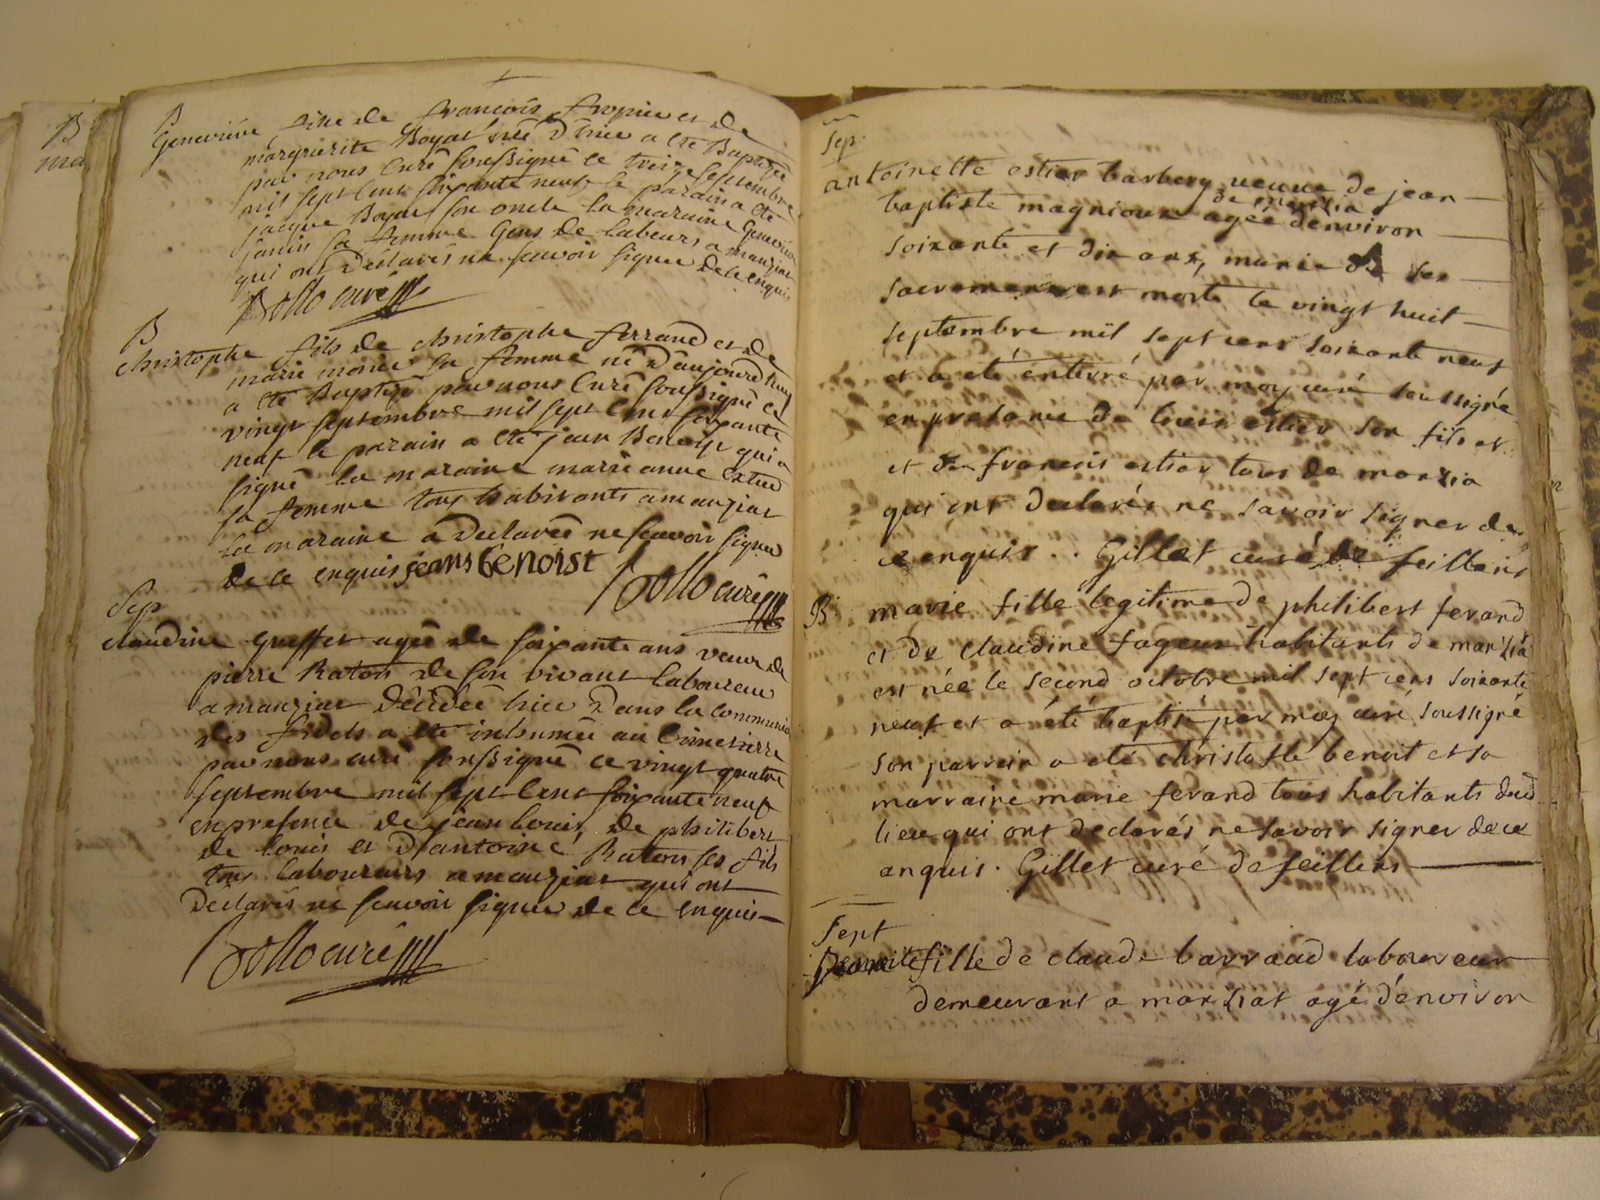 B
ma
B
Genevieve fille de francois fropier et de
marguerite Boyat née d'hier a été Baptizée
par nous curé soussigné ce treize septembre
mil sept cent soixante neuf le parain a été
jacque Boyat son oncle la maraine Genevieve
janin sa femme Gens de labeurs a manziat
qui ont declarés ne scavoir signer de ce enquis
Bollo curé
B
christophe fils de christophe ferrand et de
marie sa femme né d'aujourd'huy
a été Baptisé par nous curé soussigné ce
vingt septembre mil sept cent soixante
neuf le parain a été jean Benoist qui a
signé la maraine marie anne
sa femme tous habitants a manziat
la maraine a declarée ne scavoir signer
de ce enquis jean benoist
Bollo curé
Sep
claudine Greffet agée de soixante ans veuve de
pierre Raton de son vivant laboureur
a manziat décédée hier dans la communion
des fidels a été inhumée au cimetierre
par nous curé soussigné ce vingt quatre
septembre mil sept cent soixante neuf
en presence de jean louis, de philibert
de louis et d'antoine Raton ses fils
tous laboureurs a manziat qui ont
declarés ne scavoir signer de ce enquis
Bollo curé
Sep.
antoinette estier barbery veuve de jean
de manzia
baptiste magnioux agée denviron
soixante et dix ans, munie de ses
sacremens est morte le vingt huit
septembre mil sept cens soixante neuf
et a eté enterré par moy curé soussigné
en presance de louis estier son fils et
et de francois estier tous de manzia
qui ont declarés ne savoir signer de
ce enquis.. Gillet curé de feillens
B marie fille legitime de philibert ferand
et de claudine fageux habitants de manzia
est née le second octobre mil sept cens soixante
neuf et a été baptisé par moy curé soussigné
son parrein a eté christofle benoit et sa
marraine marie ferand tous habitants dud
lieu qui ont declarés ne savoir signer de ce
anquis. Gillet curé de feillens
Sept
fille de claude barraud laboureur
demeurant a manziat agé d'environ